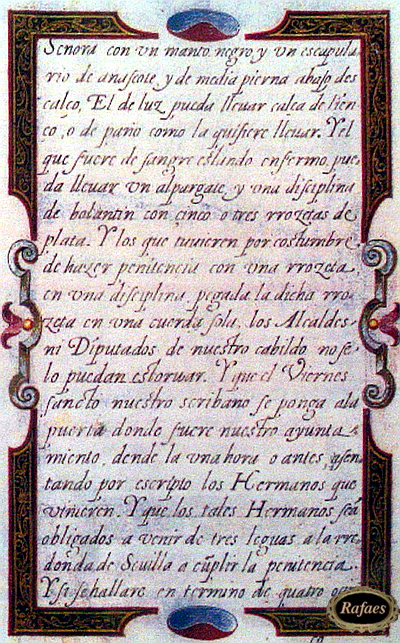 Señora con vn manto negro, y vn escapula
rio de anascote, y de media pierna abajo des
calço, El de luz pueda lleuar calça de lien
ço, o de paño como la quisiere lleuar. Y el
que fuere de sangre estando enfermo, pue
da lleuar vn alpargate, y vna disciplina
de bolantin con cinco o tres rrozetas de
plata. Y los que tuuieren por costumbre
de hazer penitencia con vna rrozeta
en vna disciplina, pegada la dicha rro
zeta en vna cuerda sola, los Alcaldes
ni Diputados de nuestro cabildo no se
lo puedan estoruar. Y que el Viernes
sancto nuestro scribano se ponga a la
puerta donde fuere nuestro ayunta
miento, dende la vna hora o antes asen
tando por escripto los Hermanos que
vinieren. Y que los tales Hermanos seã
obligados a venir de tres leguas a la rre
donda de Seuilla a cũplir la penitencia.
Y si se hallare en termino de quatro
Rafaes